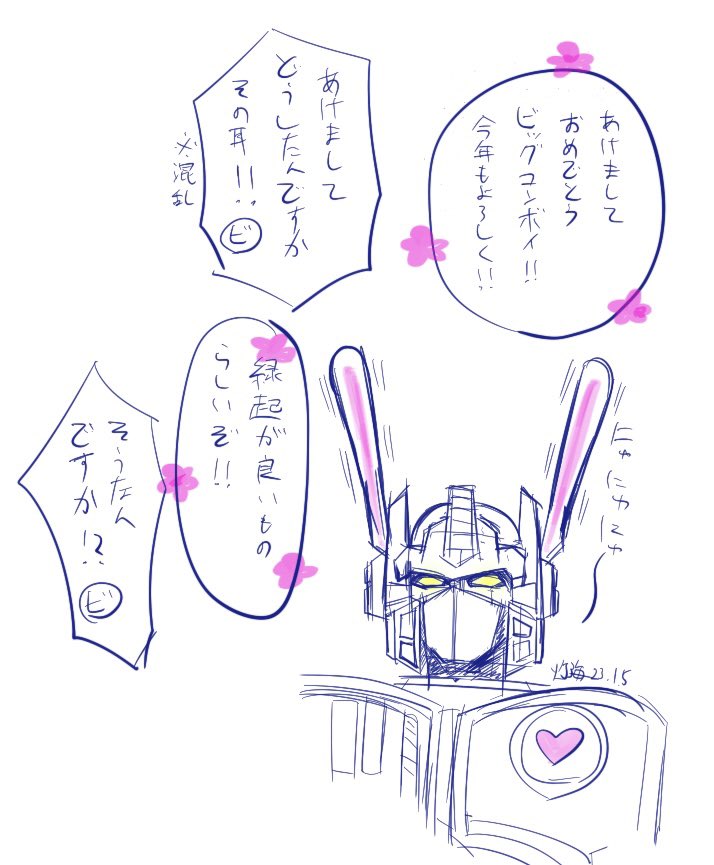 あけまして
おめでとう
ビッグコンボイ!!
今年もよろしく!!
あけまして
どうしたんですか
その耳!!
ビ
※混乱
縁起が良いもの
らしいぞ!!
そうなん
ですか!?
ビ
にゅにゅにゅ
23.1.5